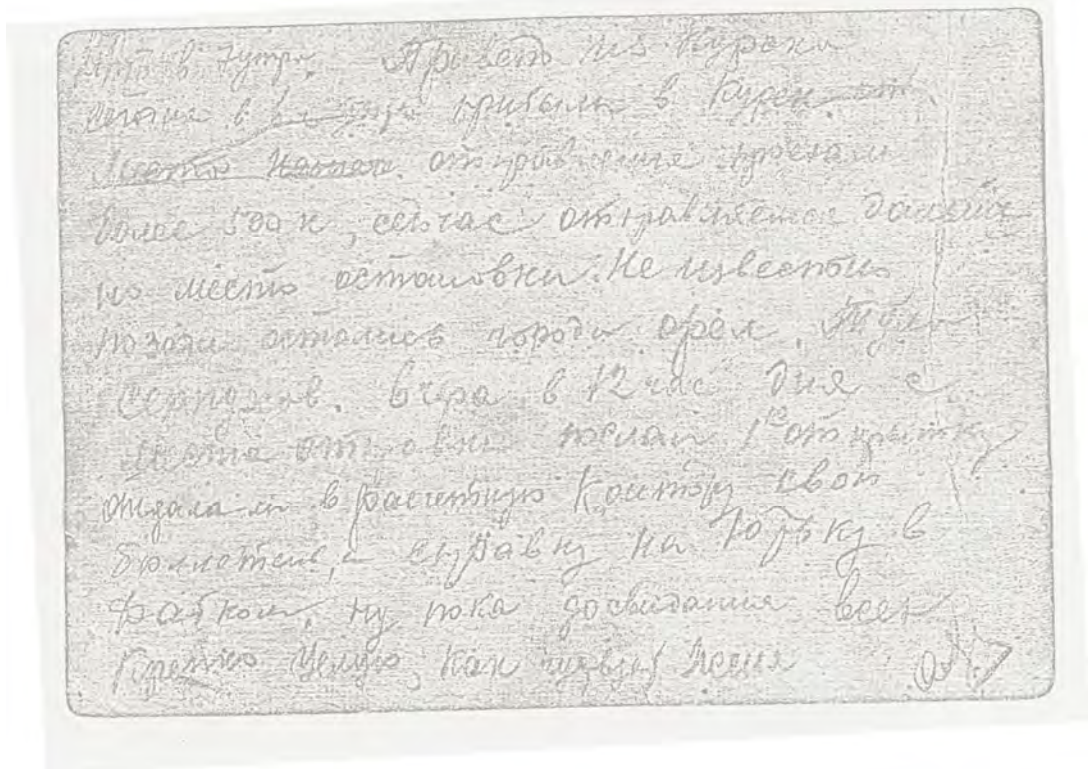 7 утра. Привет из Курска
сегодня в прибыли в Курск от
Места отправления проехали
более 500 к, сейчас отправляемся дальше
но место остановки не известно
позади остались города орел, Тула
серпухов. вчера в 12 час дня с
места послал 1ю открытку
отдала ли в расчетную контору свой
бюлютень, и справку на Юрьку в
Фабком, ну пока досвидания всех
Крепко Целую, как чувствует